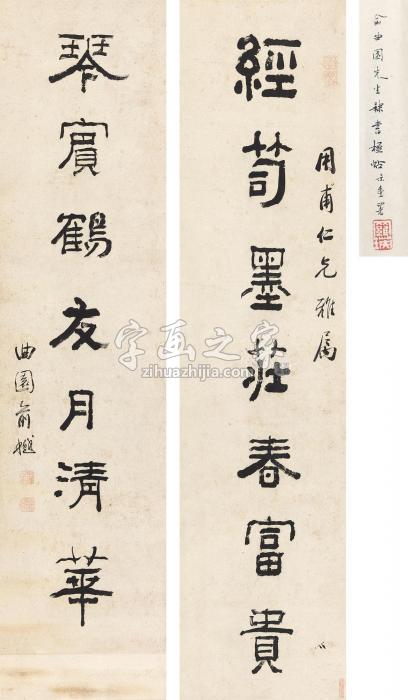 俞曲園先生隸書楹聯
用甫仁兄雅屬
經笥墨莊春富貴
琴賓鶴友月清華
曲園俞樾
字画之家
zihuazhijia.com